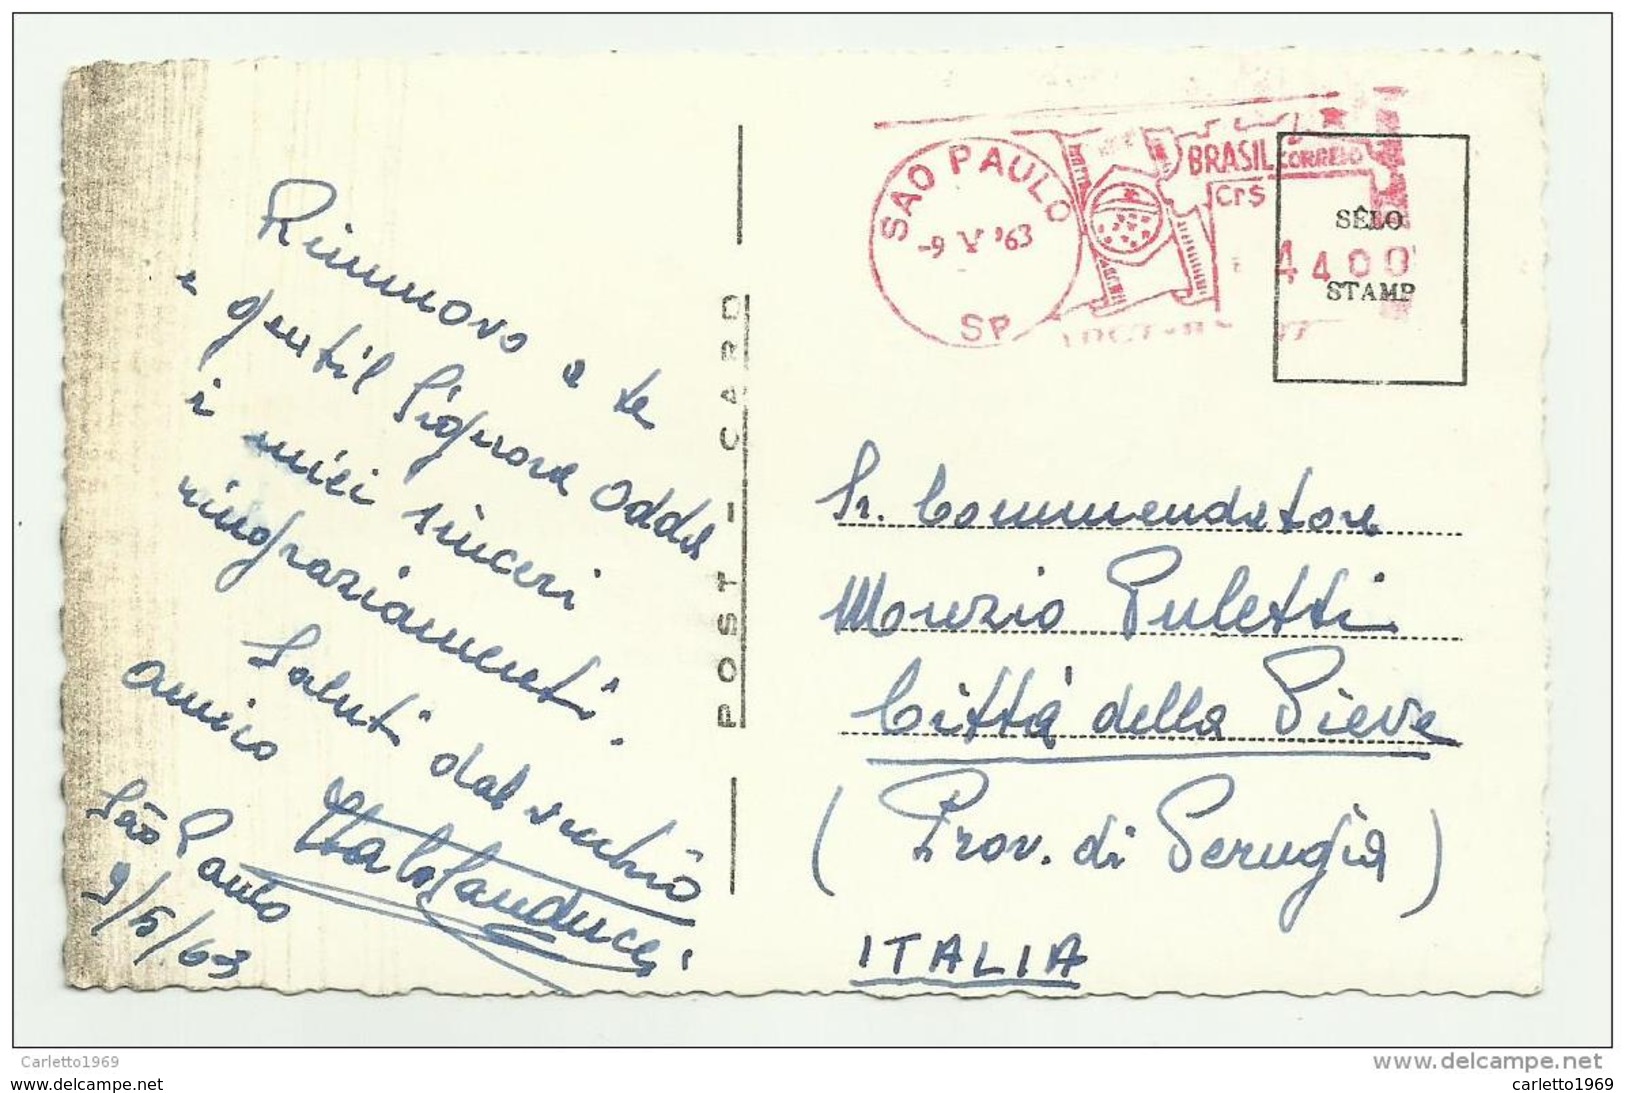 Rinnovo a te
e gentil Signora Odda
i miei sinceri
ringraziamenti.
Saluti dal vecchio
amico
São Paulo
9/5/63
POST - CARD
SAO PAULO
-9 V '63
SP
BRASIL CORREIO
Cr$
44 00
SÊLO
STAMP
Sr. Commendatore
Morezio Puletti
Città della Pieve
(Prov. di Perugia)
ITALIA
Carletto1969
delcampe.net
carletto1969
carletto1969